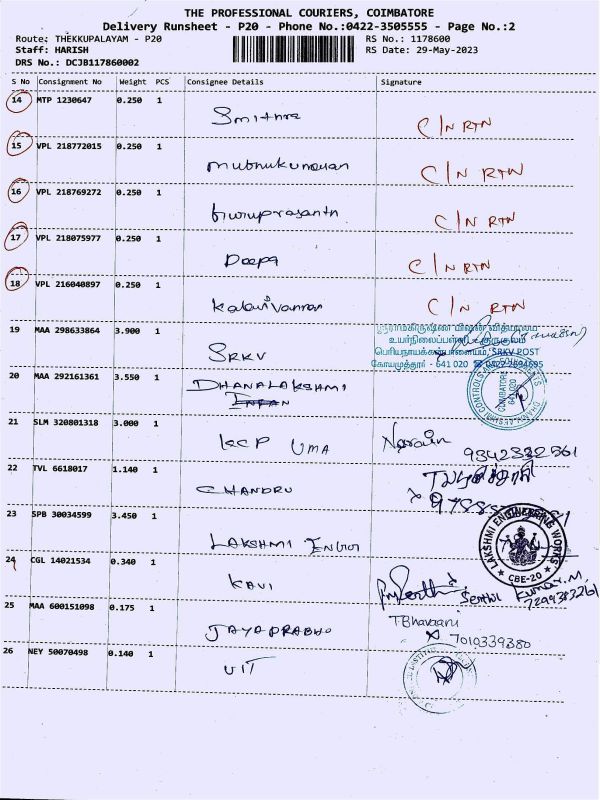 THE PROFESSIONAL COURIERS, COIMBATORE
Delivery Runsheet - P20 - Phone No.:0422-3505555 - Page No.:2
Route: THEKKUPALAYAM - P20 RS No.: 1178600
Staff: HARISH RS Date: 29-May-2023
DRS No.: DCJB117860002
S No Consignment No Weight PCS Consignee Details Signature
14 MTP 1230647 0.250 1 Smithra C/N RTN
15 VPL 218772015 0.250 1 C/N RTN
16 VPL 218769272 0.250 1 Guruprasanth C/N RTN
17 VPL 218075977 0.250 1 Deepa C/N RTN
18 VPL 216040897 0.250 1 Kalaivannan C/N RTN
19 MAA 298633864 3.900 1 SRKV
உயர்நிலைப்பள்ளி - குருகுலம்
பெரியநாயக்கன்பாளையம், SRKV POST
கோயமுத்தூர் - 641 020
20 MAA 292161361 3.550 1 DHANALAKSHMI
COIMBATORE 641 020
21 SLM 320801318 3.000 1 KCP UMA Narain
9342332561
22 TVL 6618017 1.140 1 CHANDRU
23 SPB 30034599 3.450 1 LAKSHMI Engg LAKSHMI ENGINEERING WORKS
CBE-20
24 CGL 14021534 0.340 1 KAVI Senthil Kumar.M.
25 MAA 600151098 0.175 1 JAYAPRABHU T Bhavaani
7010339380
26 NEY 50070498 0.140 1 UIT